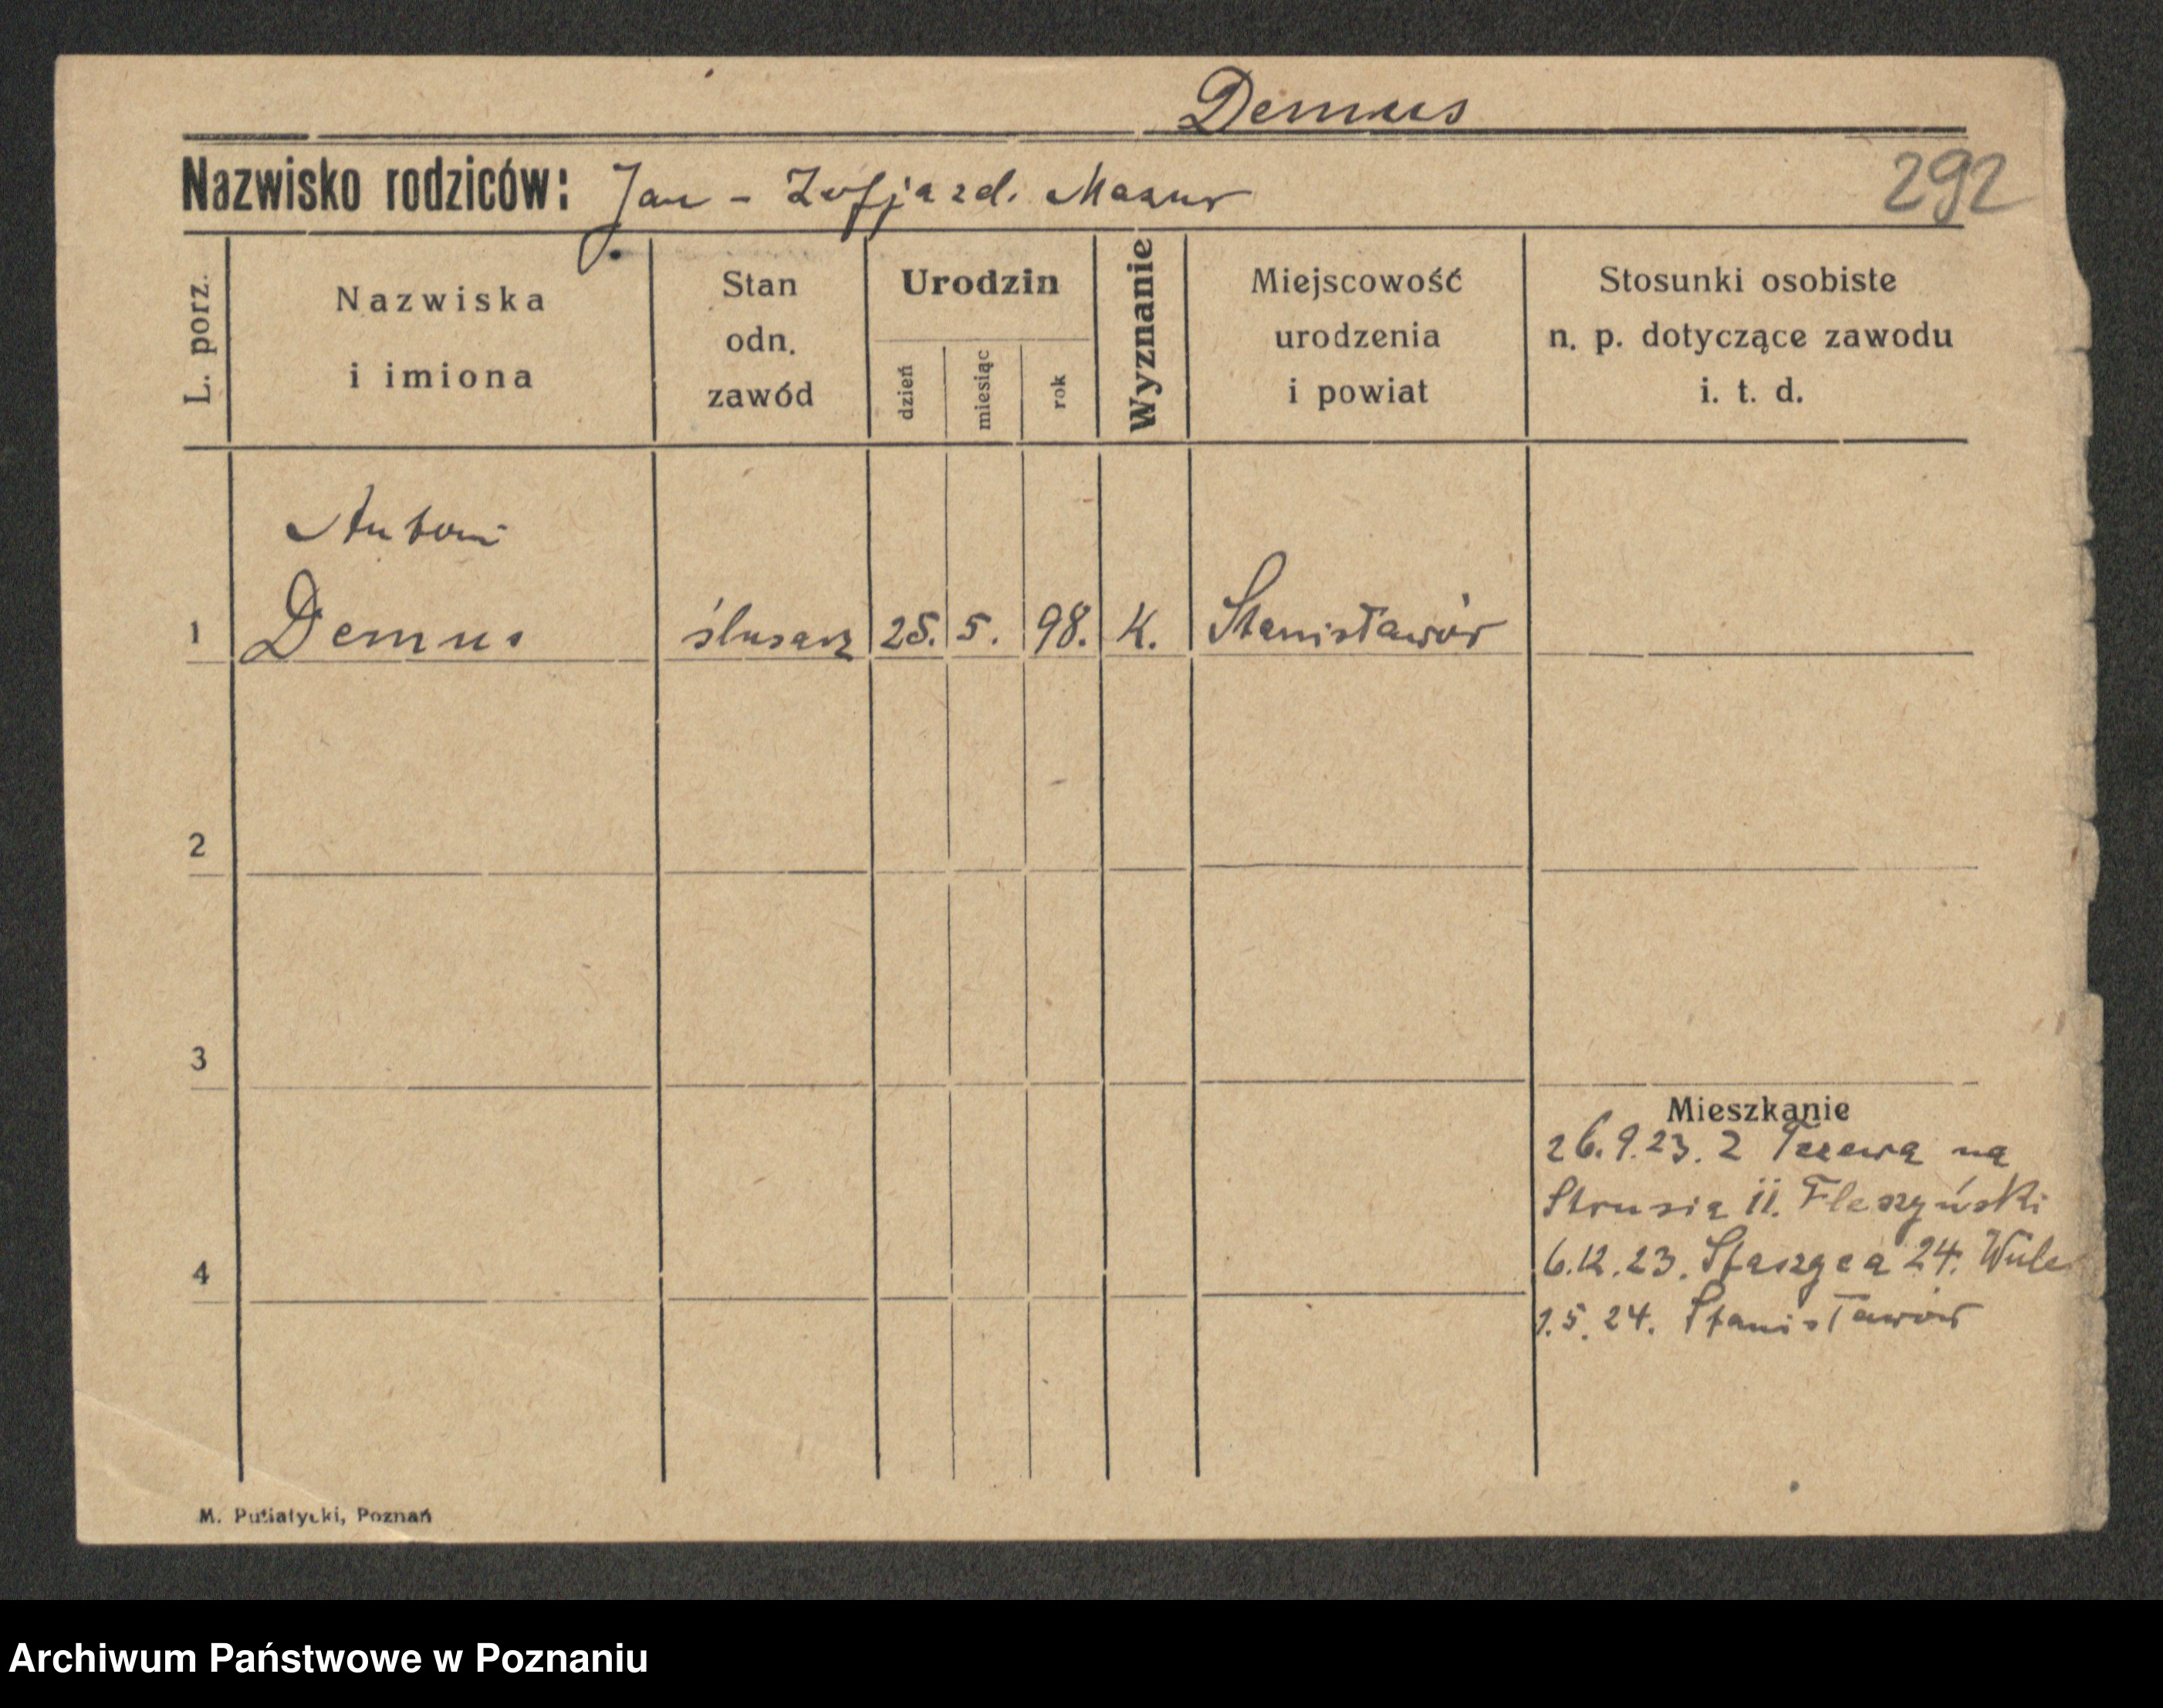 Demus
Nazwisko rodziców: Jan - Zofja zd. Mazur
292
L. porz.
Nazwiska
i imiona
Stan
odn.
zawód
Urodzin
dzień
miesiąc
rok
Wyznanie
Miejscowość
urodzenia
i powiat
Stosunki osobiste
n. p. dotyczące zawodu
i. t. d.
Antoni
1 Demus ślusarz 25. 5. 98. K. Stanisławów
2
3
Mieszkanie
26.9.23. z Tczewa na
Strusia 11. Fleszyński
4
6.12.23. Staszyca 24.
1.5.24. Stanisławów
M. Putiatycki, Poznań
Archiwum Państwowe w Poznaniu